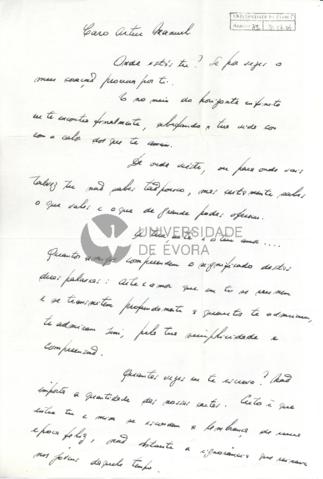 Caro Artur Manuel
Onde estás tu? Se por vezes o
meu coração procura por ti.
E no meio do horizonte infinito
eu te encontro finalmente, a tua vida com
com o calor dos que te amam.
De onde viste, ou para onde vais
Talvez tu não saibas tão pouco, mas certamente sabes
o que vales e o que de grande podes oferecer.
UNIVERSIDADE
DE ÉVORA
A tua arte e o teu amor....
Quantos compreendem o significado destas
duas palavras: arte e amor que em tu se resumem
e se transmitem profundamente a quantos te admiram,
te admiram sim, pela tua simplicidade e
compreensão.
Quantas vezes eu te escrevo? Não
importa a quantidade das nossas cartas. Certo é que
entre tu e mim se a lembrança de uma
época feliz, não obstante a ignorância que
nos jovens daquele tempo.